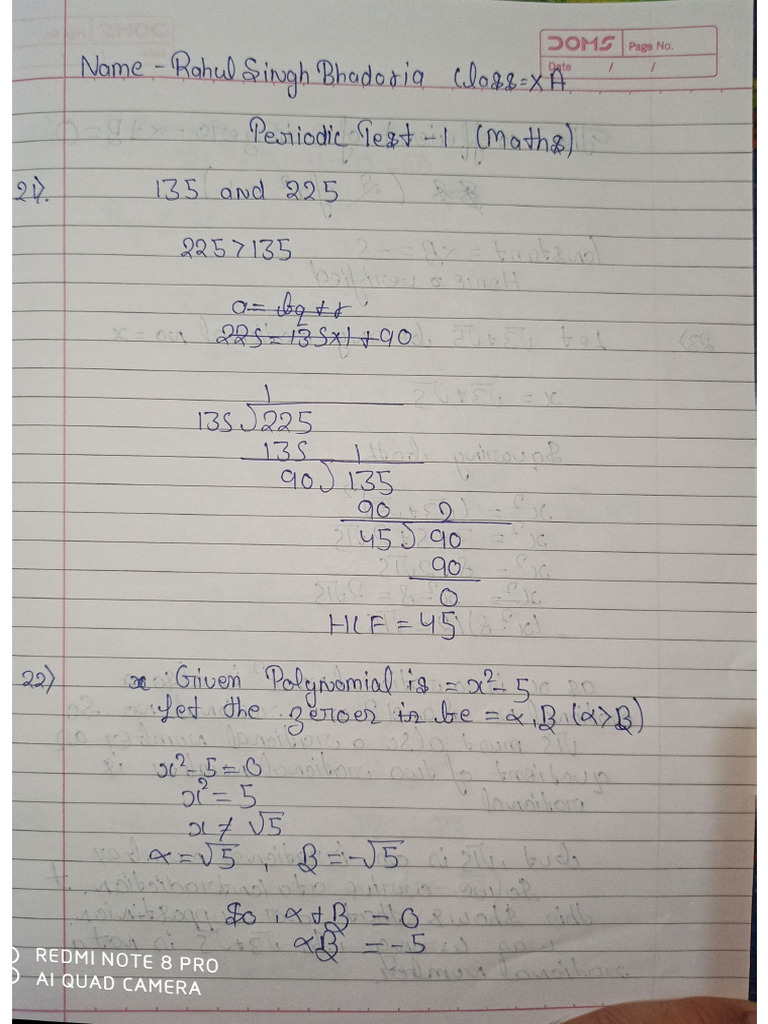 DOMS Page No.
Date / /
Name - Rahul Singh Bhadoria Class = X A
Periodic Test - 1 (Maths)
21). 135 and 225
225 > 135
a = bq + r
225 = 135x1 + 90
1
135) 225
135 1
90) 135
90 2
45) 90
90
0
HCF = 45
22) Given Polynomial is = x² - 5
Let the zeroes is be = α, β (α > β)
x² - 5 = 0
x² = 5
x ≠ √5
α = √5 , β = -√5
So , α + β = 0
αβ = -5
REDMI NOTE 8 PRO
AI QUAD CAMERA